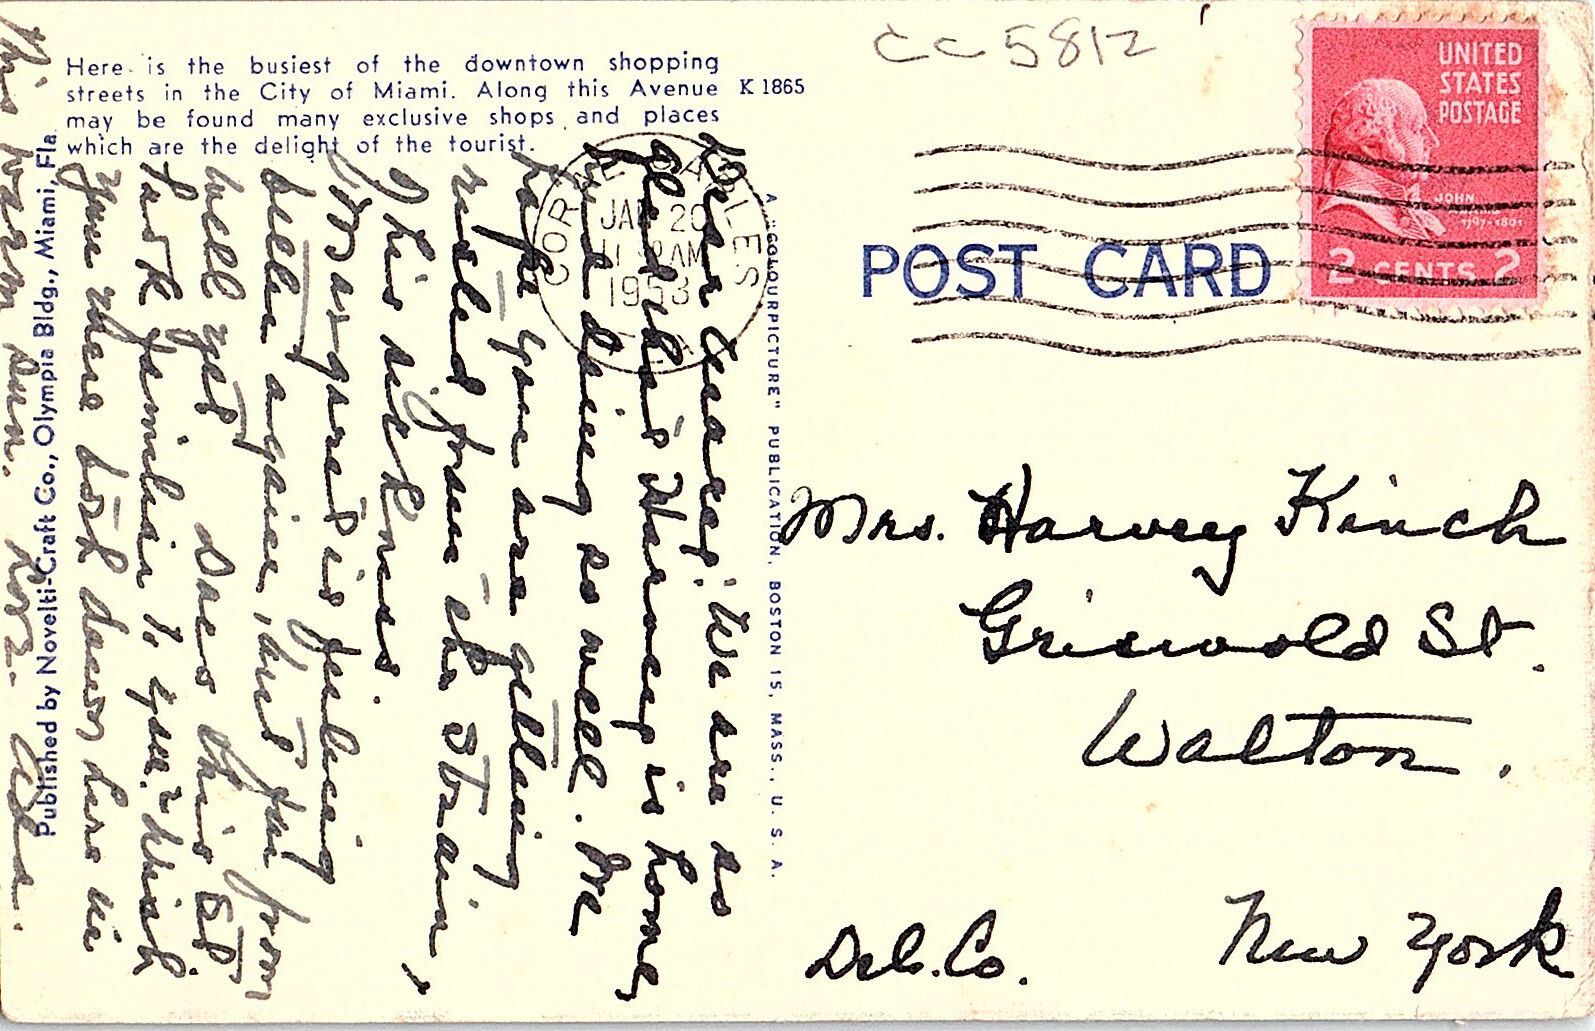 Here is the busiest of the downtown shopping
streets in the City of Miami. Along this Avenue
may be found many exclusive shops and places
which are the delight of the tourist.
K 1865
CC 5812
UNITED
STATES
POSTAGE
JOHN
ADAMS
1797-1801
2 CENTS 2
CORAL GABLES
JAN 20
AM
1953
POST CARD
Published by Novelti-Craft Co., Olympia Bldg., Miami, Fla.
A "COLOURPICTURE" PUBLICATION, BOSTON 15, MASS., U. S. A.
Dear We are so
glad that Harvey is home,
and doing so well. We
hope you are getting
rested from the strain,
this sickness.
Margaret is feeling
better again, but far from
well yet. Does this St
look familiar to you? Wish
you were both down here in
this warm sun. Love
Mrs. Harvey Kinch
Griswold St.
Walton.
Del. Co. New York